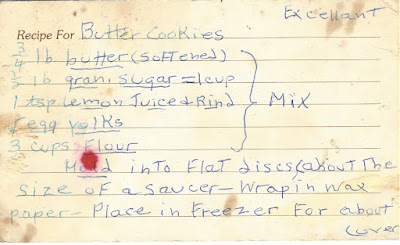 Excellant
Recipe For Butter Cookies
3/4 lb butter (softened)
1/2 lb gran. sugar = 1 cup
1 tsp Lemon Juice & Rind
egg yolks
3 cups Flour
Mix
Mold into flat discs (about the
size of a saucer - Wrap in wax
paper - Place in Freezer for about
(over